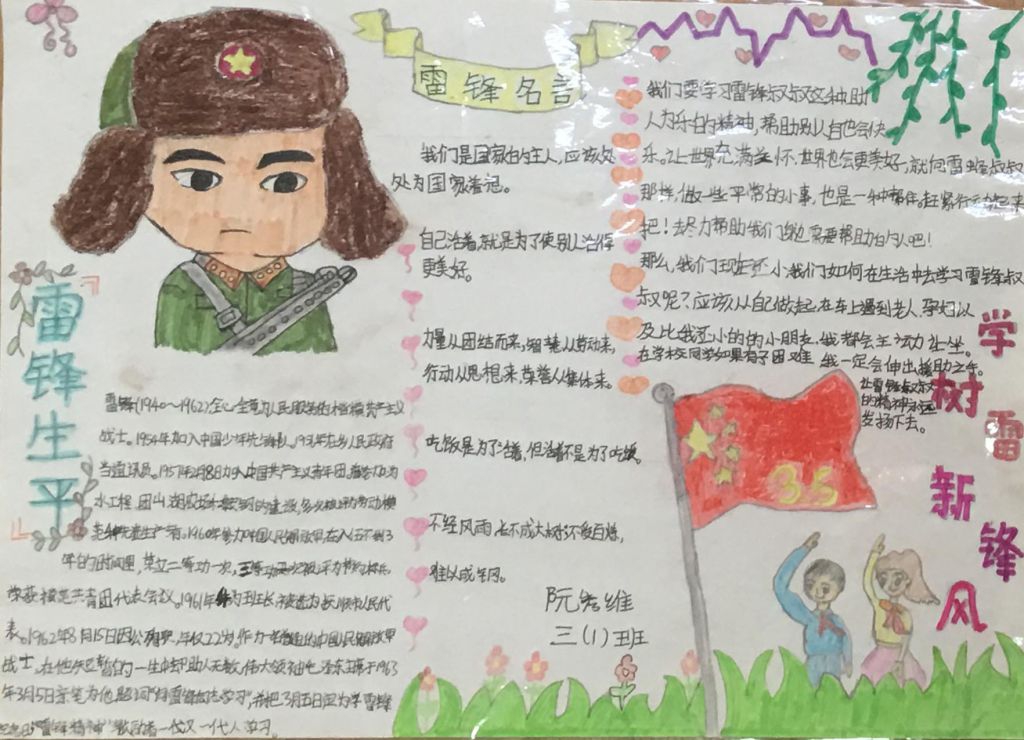 雷锋名言
我们是国家的主人,应该处
处为国家着想。
自己活着,就是为了使别人活得
更美好。
力量从团结而来,智慧从劳动来,
行动从思想来,荣誉从集体来。
吃饭是为了活着,但活着不是为了吃饭。
不经风雨,长不成大树;不受百炼,
难以成钢。
阮 维
三(1)班
我们要学习雷锋叔叔这种助
人为乐的精神,帮助别人自也会快
乐。让世界充满关怀,世界也会更美好,就向雷锋叔叔
那样,做一些平常的小事,也是一种帮伴。赶紧行动起来
把!去尽力帮助我们身边需要帮助的人吧!
那么,我们现在还小,我们如何在生活中去学习雷锋叔
叔呢?应该从自己做起,在车上遇到老人,孕妇以
及比我还小的的小朋友,我都会主动让坐。
在学校同学如果有了困难 我一定会伸出援助之手。
让雷锋叔叔
的精神永远
发扬下去。
学雷锋
树新风
35
雷锋生平
雷锋(1940~1962)全心全意为人民服务的楷模,共产主义
战士。1954年加入中国少年先锋队,
当 员。1957年2月8日加入中国共产主义青年团。
水工程,团山湖农场 的建设,
1960年参加中国人民解放军,在入伍不到3
年的时间里,荣立二等功一次,三等功
荣获 共青团代表会议。1961年 为班长,被选为 人民代
表。1962年8月15日因公殉职,年仅22岁。作为 的中国人民解放军
战士,在他 的一生中帮助人无数,伟大 毛泽东主席于1963
年3月5日亲笔为他题词"向雷锋同志学习",并把3月五日定为学雷锋
纪念日"雷锋精神"激励着一代又一代人学习。